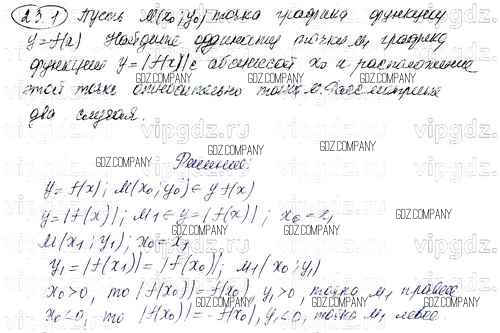 23.1 Пусть M(x₀; y₀) точка графика функции
y = f(x) Найдите ординату точки M₁ графика
функции y = |f(x)| с абсциссой x₀ и расположение
этой точки относительно точки M. Рассмотрите
два случая.
Решение:
y = f(x); M(x₀; y₀) ∈ y f(x)
y = |f(x)|; M₁ ∈ y = |f(x)|; x₀ = x₁
M(x₁; y₁); x₀ = x₁
y₁ = |f(x₁)| = |f(x₀)|; M₁(x₀; y₁)
x₀ > 0, то |f(x₀)| = f(x₀), y₁ > 0, точка M₁ правее
x₀ < 0, то |f(x₀)| = -f(x₀), y₁ < 0, точка M₁ левее.
GDZ.COMPANY
vipgdz.ru